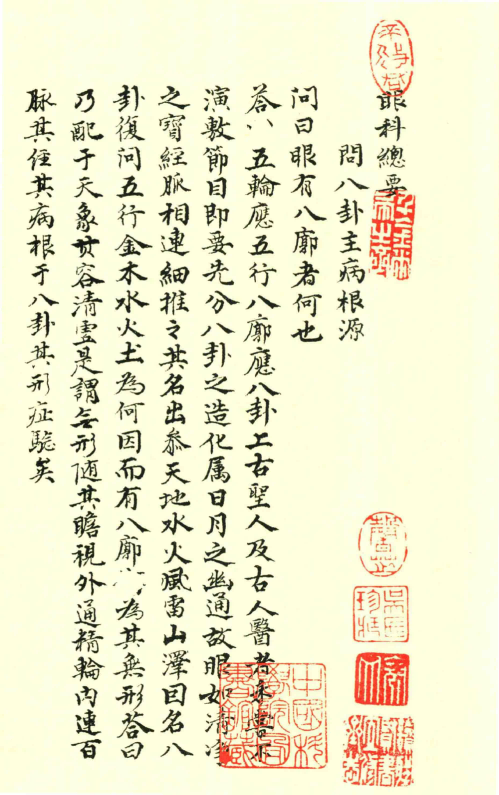 眼科總要
問八卦主病根源
問曰眼有八廓者何也
答八五輪應五行八廓應八卦上古聖人及古人醫者
演敷節目即要先分八卦之造化属日月之幽通故眼如清净
之寳經脈相連細推々其名出叅天地水火風雷山澤曰名八
卦復問五行金木水火土為何因而有八廓為其無形答曰
乃配于天象其容清虚是謂無形随其瞻視外通精輪内連百
脉其經其病根于八卦其形症驗矣